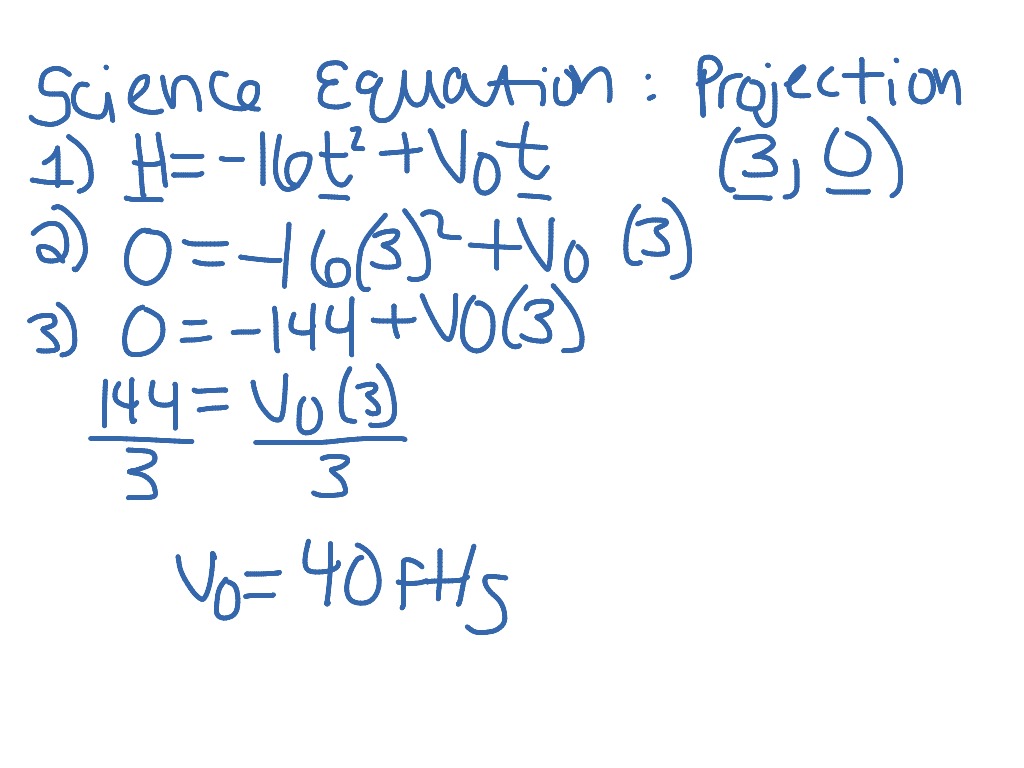 Science Equation : Projection
1) H = -16t² + V₀t (3, 0)
2) 0 = -16(3)² + V₀ (3)
3) 0 = -144 + V0(3)
144 = V₀(3)
3 3
V₀ = 40 ft/s